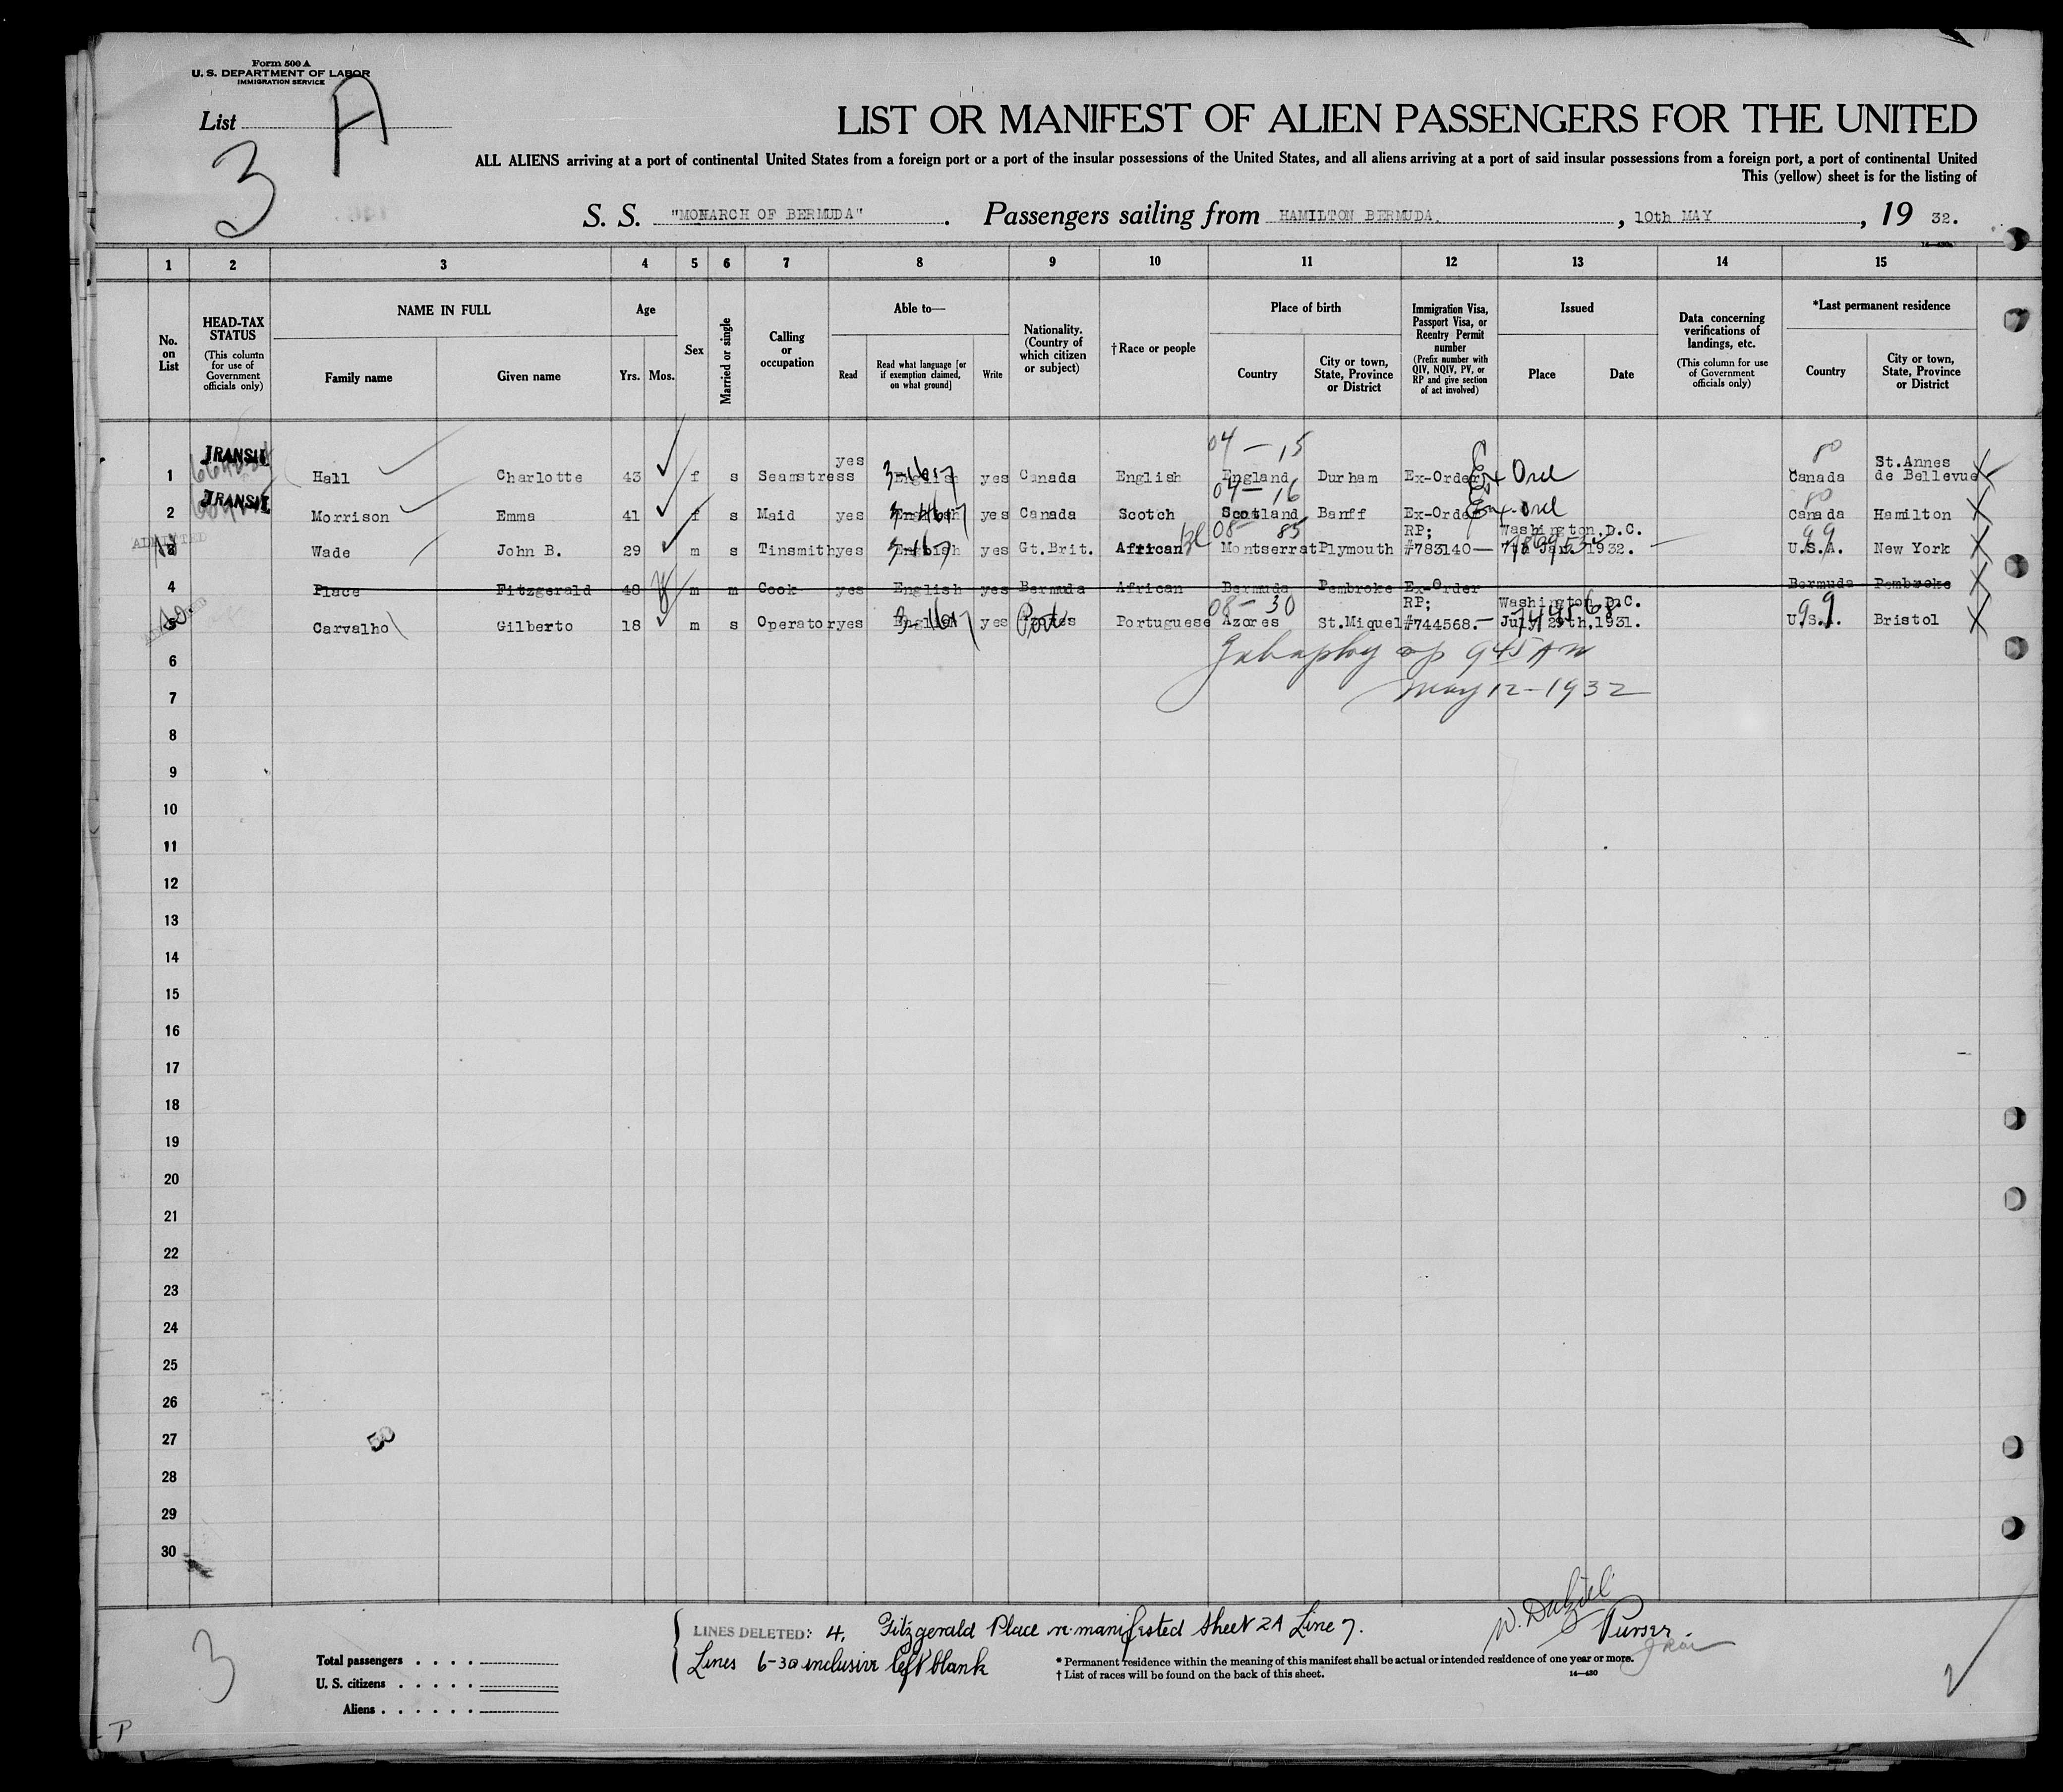 Form 500 A
U. S. DEPARTMENT OF LABOR
IMMIGRATION SERVICE
List A
3
LIST OR MANIFEST OF ALIEN PASSENGERS FOR THE UNITED
ALL ALIENS arriving at a port of continental United States from a foreign port or a port of the insular possessions of the United States, and all aliens arriving at a port of said insular possessions from a foreign port, a port of continental United
This (yellow) sheet is for the listing of
S. S. "MONARCH OF BERMUDA". Passengers sailing from HAMILTON BERMUDA., 10th MAY, 19 32.
14—430a
1 2 3 4 5 6 7 8 9 10 11 12 13 14 15
No. on List
HEAD-TAX STATUS (This column for use of Government officials only)
NAME IN FULL Family name Given name
Age Yrs. Mos.
Sex
Married or single
Calling or occupation
Able to— Read Read what language [or if exemption claimed, on what ground] Write
Nationality. (Country of which citizen or subject)
†Race or people
Place of birth Country City or town, State, Province or District
Immigration Visa, Passport Visa, or Reentry Permit number (Prefix number with QIV, NQIV, PV, or RP and give section of act involved)
Issued Place Date
Data concerning verifications of landings, etc. (This column for use of Government officials only)
*Last permanent residence Country City or town, State, Province or District
04 — 15 80
1 TRANSIT Hall Charlotte 43 f s Seamstress yes English yes Canada English England Durham Ex-Order Ex Ord Canada St.Annes de Bellevue
04 — 16 80
2 TRANSIT Morrison Emma 41 f s Maid yes English yes Canada Scotch Scotland Banff Ex-Order Ex-Ord Canada Hamilton
08 — 85 99
3 ADMITTED Wade John B. 29 m s Tinsmith yes English yes Gt.Brit. African bl Montserrat Plymouth RP; #783140— Washington.D.C. 7th Jan. 1932. U.S.A. New York
4 Place Fitzgerald 48 m m Cook yes English yes Bermuda African Bermuda Pembroke Ex-Order Bermuda Pembroke
08 — 30 99
5 Carvalho Gilberto 18 m s Operator yes English yes Port Portuguese Azores St.Miquel RP; #744568.— Washington.D.C. July 29th.1931. 744568 U.S.A. Bristol
6
945 AM
7
May 12-1932
8
9
10
11
12
13
14
15
16
17
18
19
20
21
22
23
24
25
26
27
50
28
29
30
LINES DELETED: 4, Fitzgerald Place re-manifested sheet 2A Line 7.
Lines 6-30 inclusive left blank
W. Dalziel
Purser
3
Total passengers
U. S. citizens
Aliens
* Permanent residence within the meaning of this manifest shall be actual or intended residence of one year or more.
† List of races will be found on the back of this sheet.
14—430
P